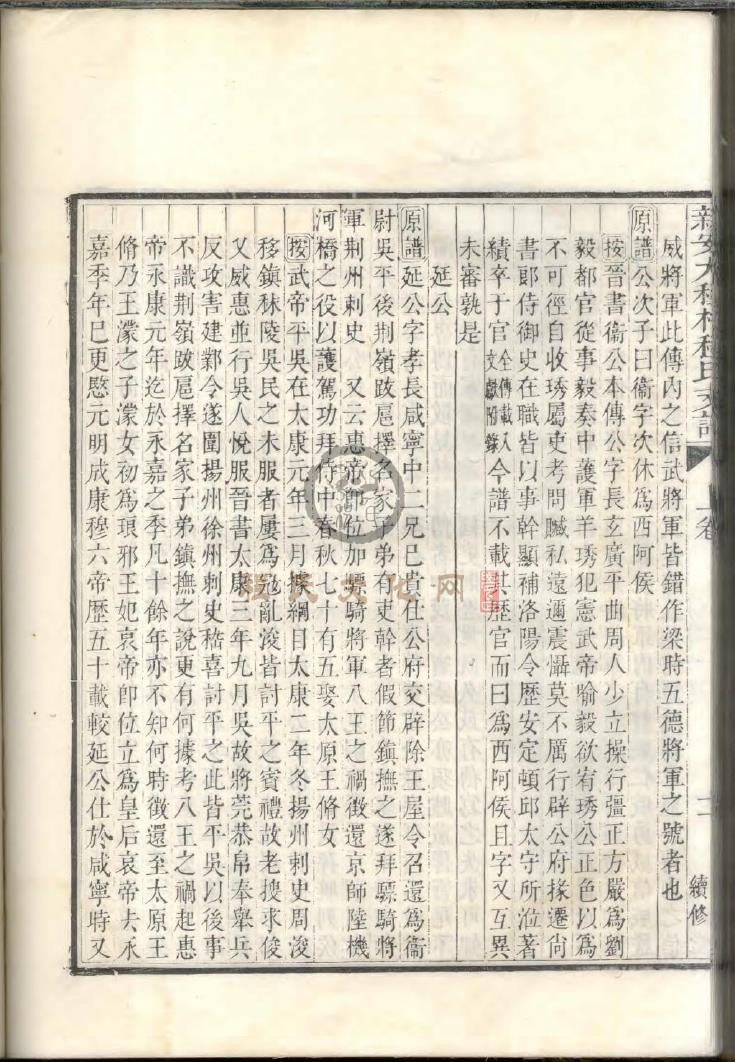 新安大程村程氏支譜
上卷
續修
威將軍此傳內之信武將軍皆錯作梁時五德將軍之號者也
原譜公次子曰衞字次休爲西阿侯
按晉書衞公本傳公字長玄廣平曲周人少立操行彊正方嚴爲劉
毅都官從事毅奏中護軍羊琇犯憲武帝喻毅欲宥琇公正色以爲
不可徑自收琇屬吏考問贓私遠邇震懾莫不厲行辟公府掾遷尙
書郎侍御史在職皆以事幹顯補洛陽令歷安定頓邱太守所涖著
績卒于官全傳載入文獻附錄今譜不載其歷官而曰爲西阿侯且字又互異
未審孰是
延公
原譜延公字孝長咸寧中二兄已肯仕公府交辟除王屋令召還爲衞
尉吳平後荆嶺跋扈擇名家子弟有吏幹者假節鎮撫之遂拜驃騎將
軍荆州刺史 又云惠帝卽位加驃騎將軍八王之禍徵還京師陸機
河橋之役以護駕功拜侍中春秋七十有五娶太原王脩女
按武帝平吳在太康元年三月據綱目太康二年冬揚州刺史周浚
移鎮秣陵吳民之未服者屢爲寇亂浚皆討平之賓禮故老搜求俊
又威惠並行吳人悅服晉書太康三年九月吳故將莞恭帛奉舉兵
反攻害建鄴令遂圍揚州徐州刺史嵇喜討平之此皆平吳以後事
不識荆嶺跋扈擇名家子弟鎮撫之說更有何據考八王之禍起惠
帝永康元年迄於永嘉之季凡十餘年亦不知何時徵還至太原王
脩乃王濛之子濛女初爲琅邪王妃哀帝卽位立爲皇后哀帝去永
嘉季年已更愍元明成康穆六帝歷五十載較延公仕於咸寧時又
程氏文化网